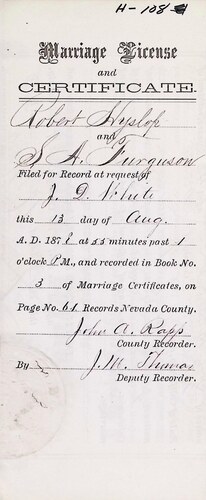 H-108
Marriage License
and
CERTIFICATE.
Robert Hyslop
and
S. A. Furguson
Filed for Record at request of
J. D. White
this 13 day of Aug.
A. D. 187 at 55 minutes past 1
o'clock P M., and recorded in Book No.
3 of Marriage Certificates, on
Page No. 61 Records Nevada County.
John A. Rapp
County Recorder.
By J. M. Thomas
Deputy Recorder.